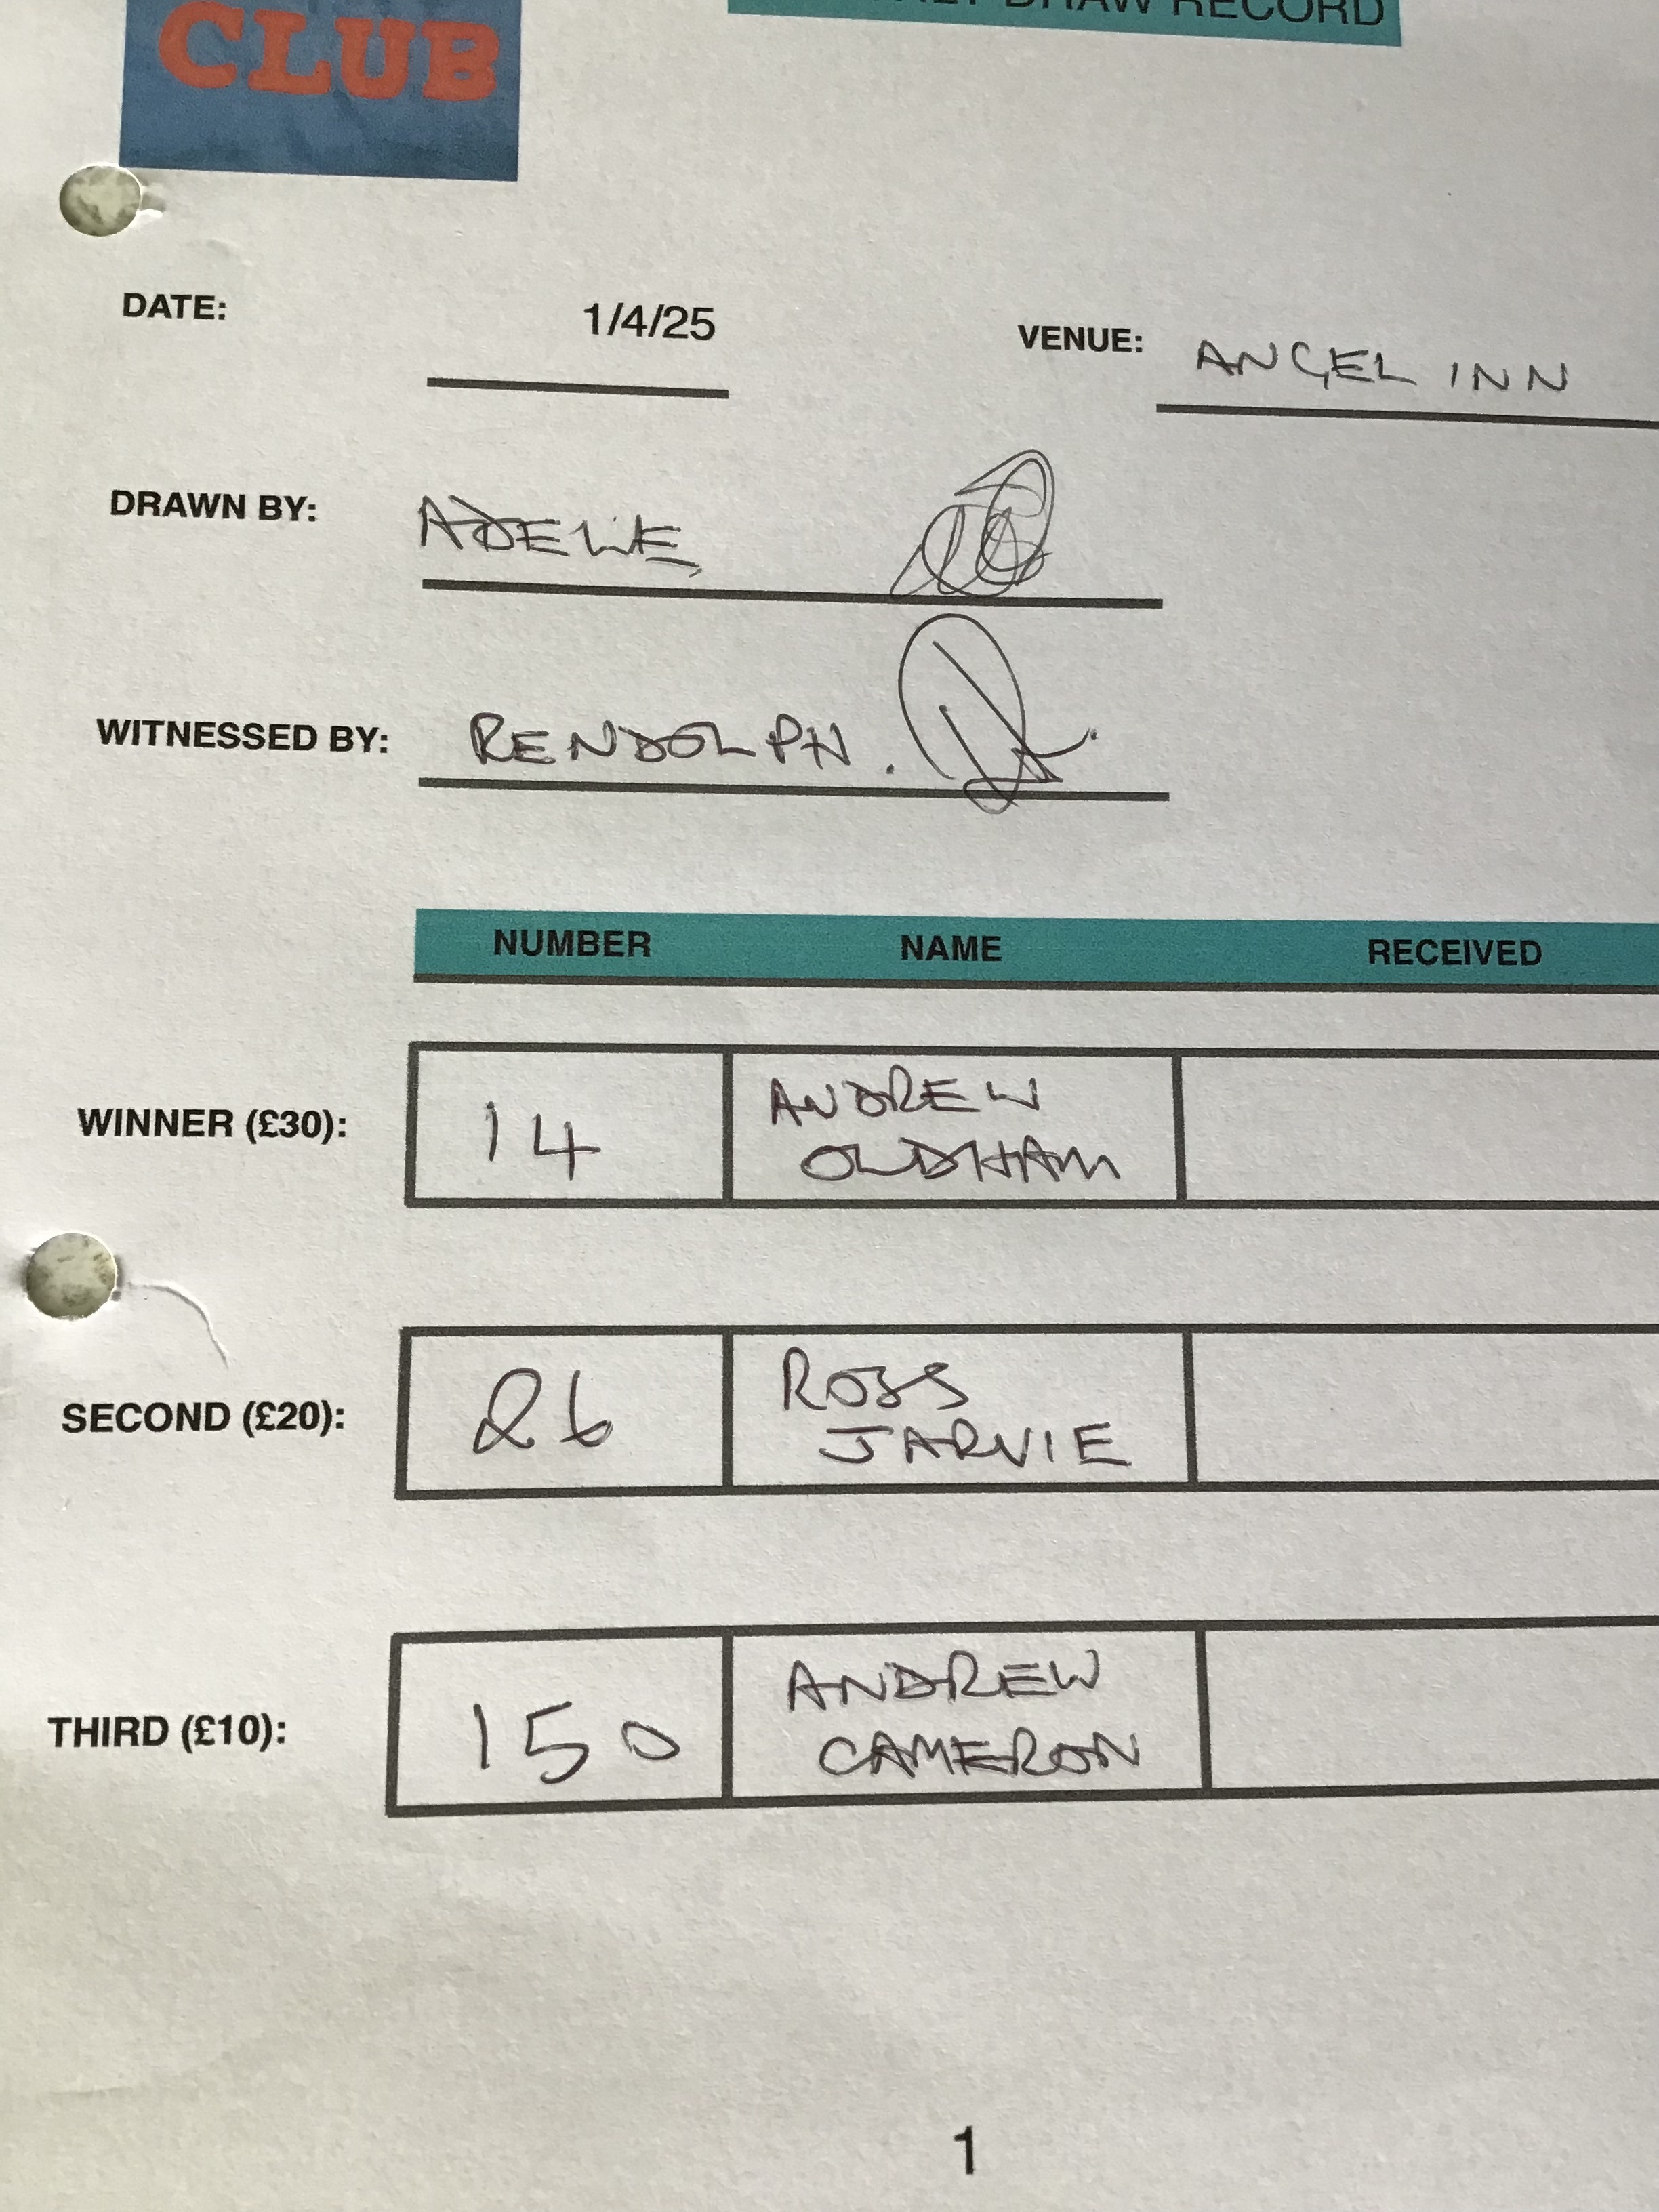 CLUB
DRAW RECORD
DATE: 1/4/25 VENUE: ANGEL INN
DRAWN BY: ADELLE
WITNESSED BY: RENDOLPH.
NUMBER NAME RECEIVED
WINNER (£30): 14 ANDREW
OLDHAM
SECOND (£20): 26 ROSS
JARVIE
THIRD (£10): 150 ANDREW
CAMERON
1